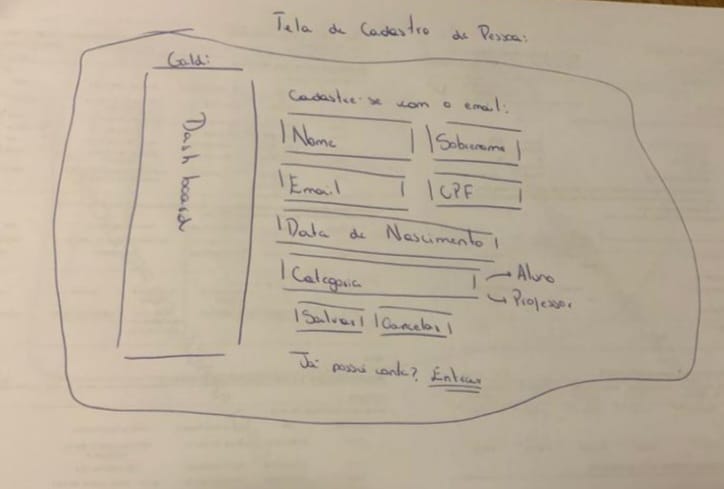 Tela de Cadastro de Pessoa:
Galdi:
Dash board
Cadastre-se com o email:
Nome
Sobrenome
Email
CPF
Data de Nascimento
Categoria
Aluno
Professor
Salvar
Cancelar
Já possui conta? Entrar